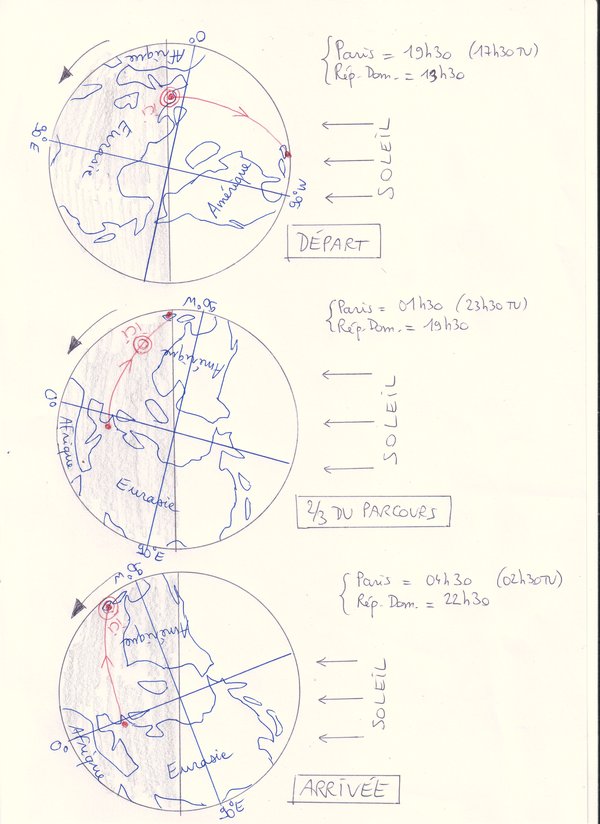 Paris = 19h30 (17h30 TU)
Rép. Dom. = 13h30
0°
Afrique
ici
90°E
Eurasie
Amérique
90°W
SOLEIL
DÉPART
Paris = 01h30 (23h30 TU)
Rép. Dom. = 19h30
90°W
ici
Amérique
0°
Afrique
Eurasie
90°E
SOLEIL
2/3 DU PARCOURS
Paris = 04h30 (02h30 TU)
Rép. Dom. = 22h30
90°W
ici
Amérique
0°
Afrique
Eurasie
90°E
SOLEIL
ARRIVÉE